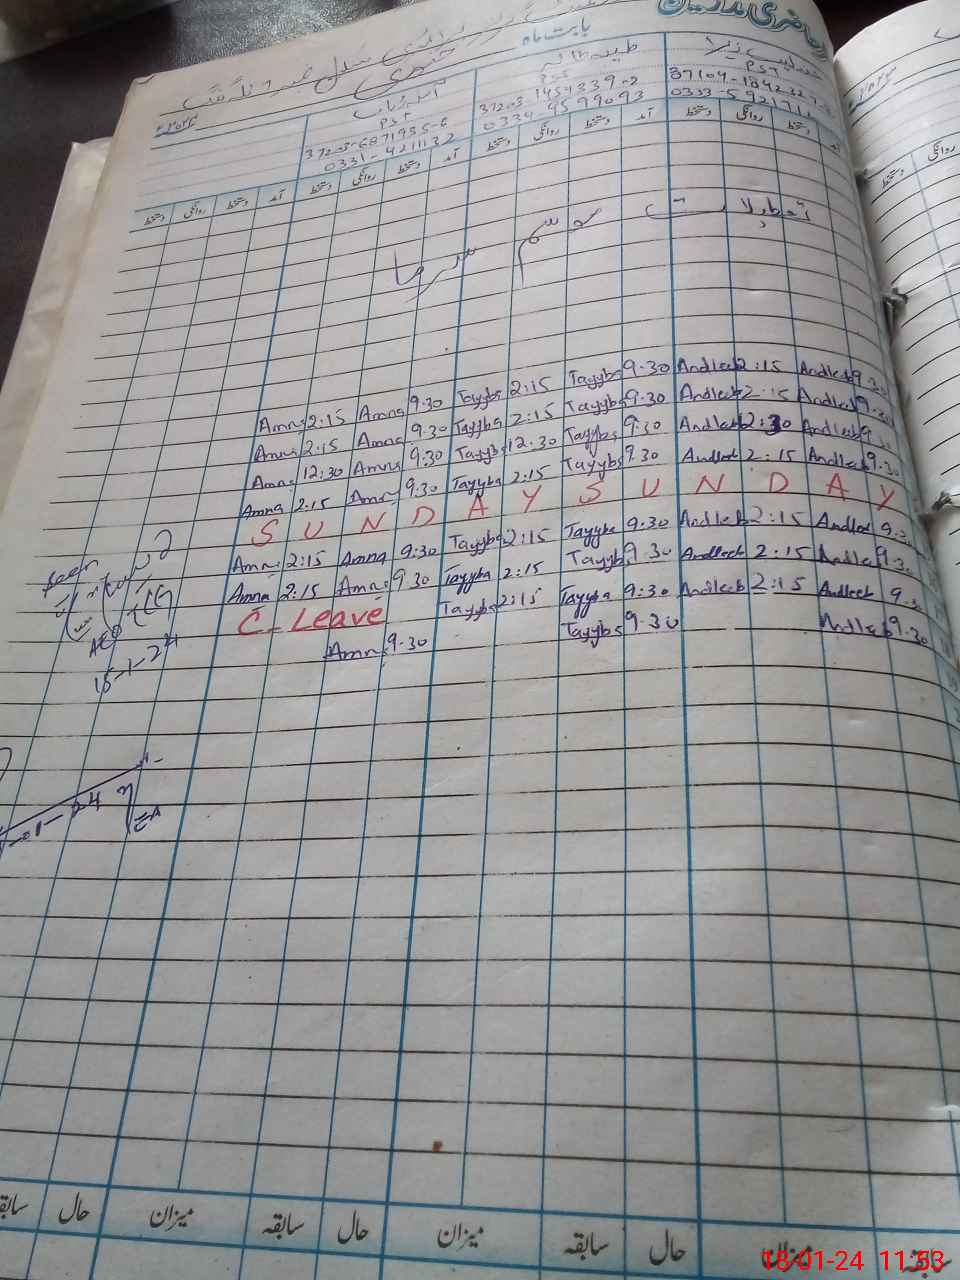 حاضری مدرسین
بابت ماہ
جنوری
۲۰۲۴ء
عندلیب زہرا
PST
0333-5921711
طیبہ
PST
37203-1454339-2
0334-9599093
PST
37203-6871935-6
0331-4211132
آمد دستخط روانگی دستخط آمد دستخط روانگی دستخط آمد دستخط روانگی دستخط
تعطیلات موسم سرما
Amna 2:15 Amna 9.30 Tayyba 2:15 Tayyba 9.30 Andleeb 2:15 Andleeb 9.30
Amna 2:15 Amna 9.30 Tayyba 2:15 Tayyba 9.30 Andleeb 2:15 Andleeb 9.30
Amna 12:30 Amna 9.30 Tayyba 12.30 Tayyba 9.30 Andleeb 2:30 Andleeb 9.30
Amna 2:15 Amna 9.30 Tayyba 2:15 Tayyba 9.30 Andleeb 2:15 Andleeb 9.30
S U N D A Y S U N D A Y
Amna 2:15 Amna 9.30 Tayyba 2:15 Tayyba 9.30 Andleeb 2:15 Andleeb 9.30
Amna 2:15 Amna 9.30 Tayyba 2:15 Tayyba 9.30 Andleeb 2:15 Andleeb 9.30
C- Leave Tayyba 2:15 Tayyba 9:30 Andleeb 2:15 Andleeb 9.30
Amna 9.30 Tayyba 9-30 Andleeb 9.30
Seen
AEO
15-1-24
01-24
سابقہ حال میزان سابقہ حال میزان سابقہ حال میزان سابقہ
18-01-24 11:53